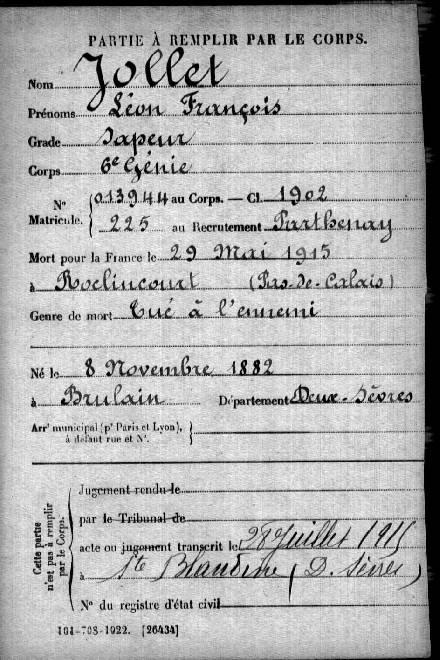 PARTIE À REMPLIR PAR LE CORPS.
Nom Jollet
Prénoms Léon François
Grade Sapeur
Corps 6e Génie
N° Matricule. 013944 au Corps. — Cl. 1902
225 au Recrutement Parthenay
Mort pour la France le 29 Mai 1915
à Roclincourt (Pas-de-Calais)
Genre de mort Tué à l'ennemi
Né le 8 Novembre 1882
à Brulain Département Deux-Sèvres
Arr' municipal (p' Paris et Lyon),
à défaut rue et N°.
Cette partie
n'est pas à remplir
par le Corps.
Jugement rendu le
par le Tribunal de
acte ou jugement transcrit le Juillet 1915
à Ste Blandine (D. Sèvres)
N° du registre d'état civil
101-708-1922. [26434]